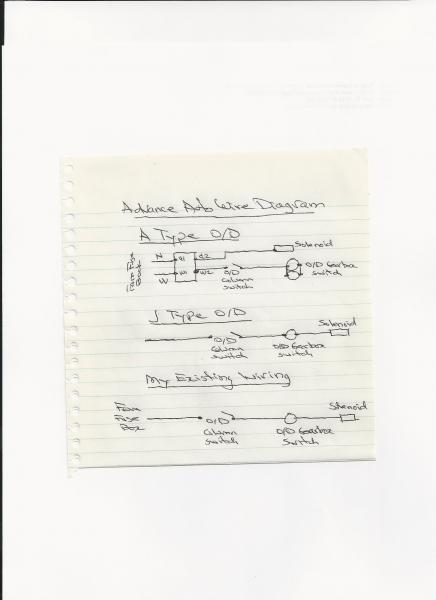 Advance Auto Wire Diagram
A Type O/D
N
W
From Fuse
W1
W2
Solenoid
O/D
Column
switch
O/D Gearbox
switch
J Type O/D
O/D
Column
switch
O/D Gearbox
Switch
Solenoid
My Existing Wiring
From
Fuse
Box
O/D
Column
Switch
O/D Gearbox
Switch
Solenoid